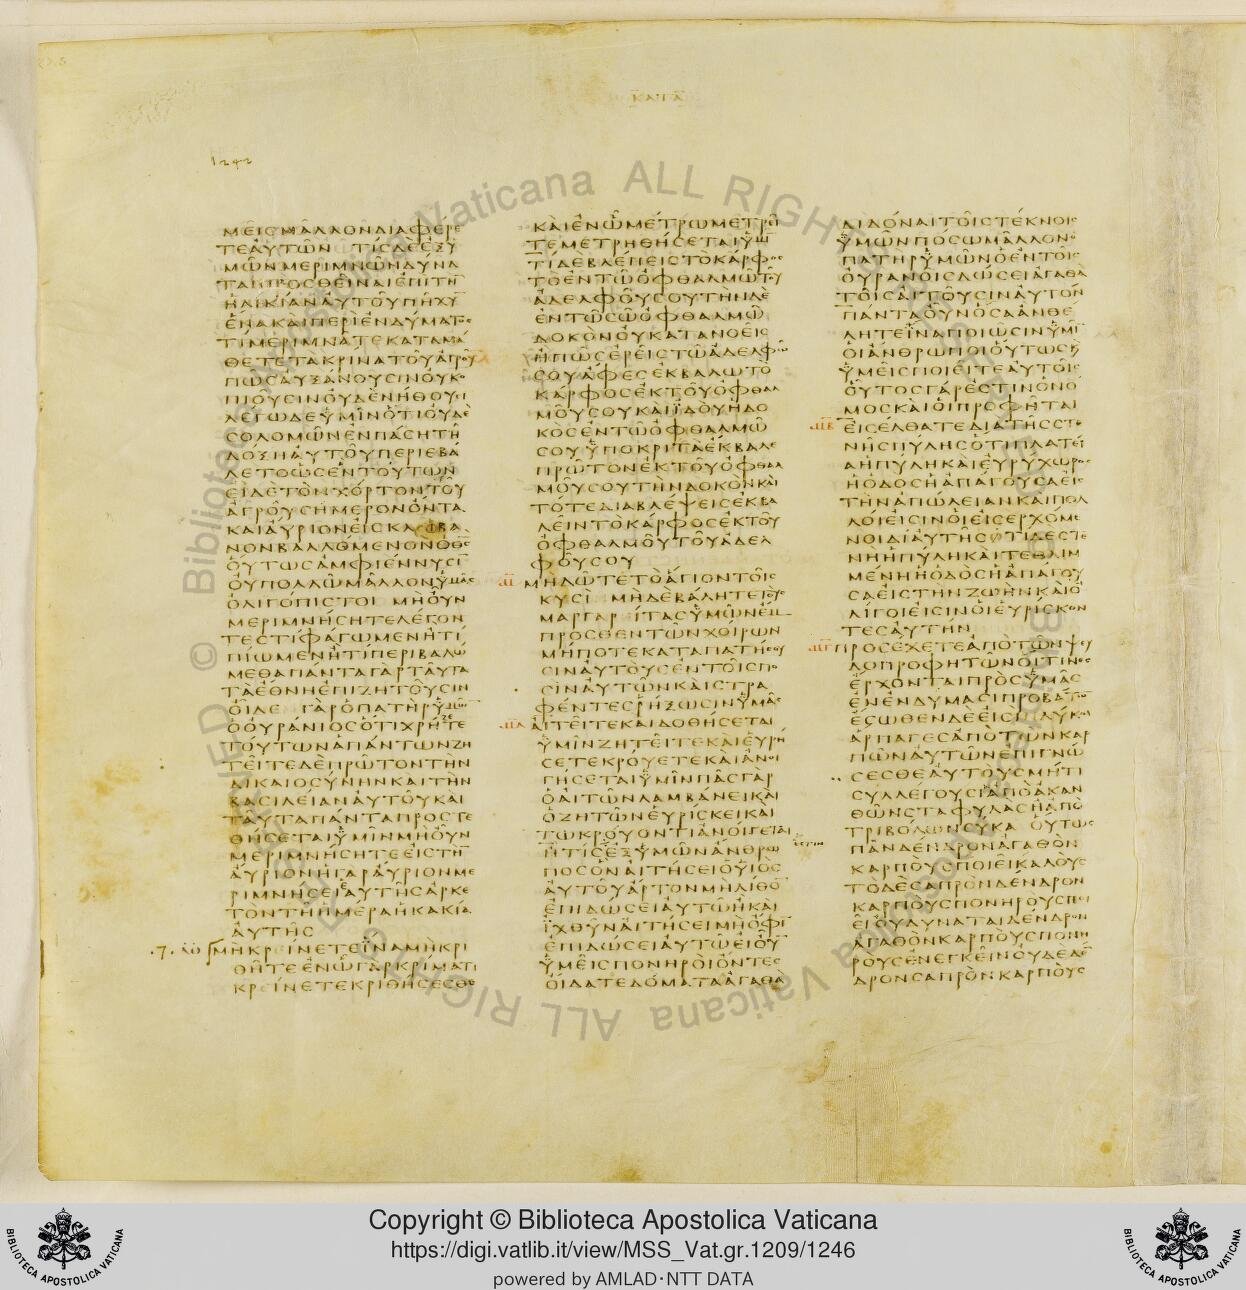 ΚΑΤΑ
1242
ΜΕΙΣ ΜΑΛΛΟΝ ΔΙΑΦΕΡΕ
ΤΕ ΑΥΤΩΝ ΤΙΣ ΔΕ ΕΞ Υ
ΜΩΝ ΜΕΡΙΜΝΩΝ ΔΥΝΑ
ΤΑΙ ΠΡΟΣΘΕΙΝΑΙ ΕΠΙ ΤΗ
ΗΛΙΚΙΑΝ ΑΥΤΟΥ ΠΗΧΥ
ΕΝΑ ΚΑΙ ΠΕΡΙ ΕΝΔΥΜΑΤΟΣ
ΤΙ ΜΕΡΙΜΝΑΤΕ ΚΑΤΑΜΑ
ΘΕΤΕ ΤΑ ΚΡΙΝΑ ΤΟΥ ΑΓΡΟΥ
ΠΩΣ ΑΥΞΑΝΟΥΣΙΝ ΟΥ ΚΟ
ΠΙΟΥΣΙΝ ΟΥΔΕ ΝΗΘΟΥΣΙ
ΛΕΓΩ ΔΕ ΥΜΙΝ ΟΤΙ ΟΥΔΕ
ΣΟΛΟΜΩΝ ΕΝ ΠΑΣΗ ΤΗ
ΔΟΞΗ ΑΥΤΟΥ ΠΕΡΙΕΒΑ
ΛΕΤΟ ΩΣ ΕΝ ΤΟΥΤΩΝ
ΕΙ ΔΕ ΤΟΝ ΧΟΡΤΟΝ ΤΟΥ
ΑΓΡΟΥ ΣΗΜΕΡΟΝ ΟΝΤΑ
ΚΑΙ ΑΥΡΙΟΝ ΕΙΣ ΚΛΙΒΑ
ΝΟΝ ΒΑΛΛΟΜΕΝΟΝ Ο ΘΣ
ΟΥΤΩΣ ΑΜΦΙΕΝΝΥΣΙ
ΟΥ ΠΟΛΛΩ ΜΑΛΛΟΝ ΥΜΑΣ
ΟΛΙΓΟΠΙΣΤΟΙ ΜΗ ΟΥΝ
ΜΕΡΙΜΝΗΣΗΤΕ ΛΕΓΟΝ
ΤΕΣ ΤΙ ΦΑΓΩΜΕΝ Η ΤΙ
ΠΙΩΜΕΝ Η ΤΙ ΠΕΡΙΒΑΛΩ
ΜΕΘΑ ΠΑΝΤΑ ΓΑΡ ΤΑΥΤΑ
ΤΑ ΕΘΝΗ ΕΠΙΖΗΤΟΥΣΙΝ
ΟΙΔΕ ΓΑΡ Ο ΠΑΤΗΡ ΥΜΩΝ
Ο ΟΥΡΑΝΙΟΣ ΟΤΙ ΧΡΗΖΕΤΕ
ΤΟΥΤΩΝ ΑΠΑΝΤΩΝ ΖΗ
ΤΕΙΤΕ ΔΕ ΠΡΩΤΟΝ ΤΗΝ
ΔΙΚΑΙΟΣΥΝΗΝ ΚΑΙ ΤΗΝ
ΒΑΣΙΛΕΙΑΝ ΑΥΤΟΥ ΚΑΙ
ΤΑΥΤΑ ΠΑΝΤΑ ΠΡΟΣΤΕ
ΘΗΣΕΤΑΙ ΥΜΙΝ ΜΗ ΟΥΝ
ΜΕΡΙΜΝΗΣΗΤΕ ΕΙΣ ΤΗ
ΑΥΡΙΟΝ Η ΓΑΡ ΑΥΡΙΟΝ ΜΕ
ΡΙΜΝΗΣΕΙ ΕΑΥΤΗΣ ΑΡΚΕ
ΤΟΝ ΤΗ ΗΜΕΡΑ Η ΚΑΚΙΑ
ΑΥΤΗΣ
ΜΗ ΚΡΕΙΝΕΤΕ ΙΝΑ ΜΗ ΚΡΙ
ΘΗΤΕ ΕΝ Ω ΓΑΡ ΚΡΙΜΑΤΙ
ΚΡΕΙΝΕΤΕ ΚΡΙΘΗΣΕΣΘΕ
ΚΑΙ ΕΝ Ω ΜΕΤΡΩ ΜΕΤΡΕΙ
ΤΕ ΜΕΤΡΗΘΗΣΕΤΑΙ ΥΜΙ
ΤΙ ΔΕ ΒΛΕΠΕΙΣ ΤΟ ΚΑΡΦΟΣ
ΤΟ ΕΝ ΤΩ ΟΦΘΑΛΜΩ ΤΟΥ
ΑΔΕΛΦΟΥ ΣΟΥ ΤΗΝ ΔΕ
ΕΝ ΤΩ ΣΩ ΟΦΘΑΛΜΩ
ΔΟΚΟΝ ΟΥ ΚΑΤΑΝΟΕΙΣ
Η ΠΩΣ ΕΡΕΙΣ ΤΩ ΑΔΕΛΦΩ
ΣΟΥ ΑΦΕΣ ΕΚΒΑΛΩ ΤΟ
ΚΑΡΦΟΣ ΕΚ ΤΟΥ ΟΦΘΑΛ
ΜΟΥ ΣΟΥ ΚΑΙ ΙΔΟΥ Η ΔΟ
ΚΟΣ ΕΝ ΤΩ ΟΦΘΑΛΜΩ
ΣΟΥ ΥΠΟΚΡΙΤΑ ΕΚΒΑΛΕ
ΠΡΩΤΟΝ ΕΚ ΤΟΥ ΟΦΘΑΛ
ΜΟΥ ΣΟΥ ΤΗΝ ΔΟΚΟΝ ΚΑΙ
ΤΟΤΕ ΔΙΑΒΛΕΨΕΙΣ ΕΚΒΑ
ΛΕΙΝ ΤΟ ΚΑΡΦΟΣ ΕΚ ΤΟΥ
ΟΦΘΑΛΜΟΥ ΤΟΥ ΑΔΕΛ
ΦΟΥ ΣΟΥ
ΜΗ ΔΩΤΕ ΤΟ ΑΓΙΟΝ ΤΟΙΣ
ΚΥΣΙ ΜΗΔΕ ΒΑΛΗΤΕ ΤΟΥΣ
ΜΑΡΓΑΡΙΤΑΣ ΥΜΩΝ ΕΜ
ΠΡΟΣΘΕΝ ΤΩΝ ΧΟΙΡΩΝ
ΜΗΠΟΤΕ ΚΑΤΑΠΑΤΗΣΟΥ
ΣΙΝ ΑΥΤΟΥΣ ΕΝ ΤΟΙΣ ΠΟ
ΣΙΝ ΑΥΤΩΝ ΚΑΙ ΣΤΡΑ
ΦΕΝΤΕΣ ΡΗΞΩΣΙΝ ΥΜΑΣ
ΑΙΤΕΙΤΕ ΚΑΙ ΔΟΘΗΣΕΤΑΙ
ΥΜΙΝ ΖΗΤΕΙΤΕ ΚΑΙ ΕΥΡΗ
ΣΕΤΕ ΚΡΟΥΕΤΕ ΚΑΙ ΑΝΟΙ
ΓΗΣΕΤΑΙ ΥΜΙΝ ΠΑΣ ΓΑΡ
Ο ΑΙΤΩΝ ΛΑΜΒΑΝΕΙ ΚΑΙ
Ο ΖΗΤΩΝ ΕΥΡΙΣΚΕΙ ΚΑΙ
ΤΩ ΚΡΟΥΟΝΤΙ ΑΝΟΙΓΕΤΑΙ
Η ΤΙΣ ΕΞ ΥΜΩΝ ΑΝΘΡΩ
ΠΟΣ ΟΝ ΑΙΤΗΣΕΙ Ο ΥΙΟΣ
ΑΥΤΟΥ ΑΡΤΟΝ ΜΗ ΛΙΘΟ
ΕΠΙΔΩΣΕΙ ΑΥΤΩ Η ΚΑΙ
ΙΧΘΥΝ ΑΙΤΗΣΕΙ ΜΗ ΟΦΙ
ΕΠΙΔΩΣΕΙ ΑΥΤΩ ΕΙ ΟΥ
ΥΜΕΙΣ ΠΟΝΗΡΟΙ ΟΝΤΕΣ
ΟΙΔΑΤΕ ΔΟΜΑΤΑ ΑΓΑΘΑ
ΔΙΔΟΝΑΙ ΤΟΙΣ ΤΕΚΝΟΙΣ
ΥΜΩΝ ΠΟΣΩ ΜΑΛΛΟΝ Ο
ΠΑΤΗΡ ΥΜΩΝ Ο ΕΝ ΤΟΙΣ
ΟΥΡΑΝΟΙΣ ΔΩΣΕΙ ΑΓΑΘΑ
ΤΟΙΣ ΑΙΤΟΥΣΙΝ ΑΥΤΟΝ
ΠΑΝΤΑ ΟΥΝ ΟΣΑ ΑΝ ΘΕ
ΛΗΤΕ ΙΝΑ ΠΟΙΩΣΙΝ ΥΜΙ
ΟΙ ΑΝΘΡΩΠΟΙ ΟΥΤΩΣ Κ
ΥΜΕΙΣ ΠΟΙΕΙΤΕ ΑΥΤΟΙΣ
ΟΥΤΟΣ ΓΑΡ ΕΣΤΙΝ Ο ΝΟ
ΜΟΣ ΚΑΙ ΟΙ ΠΡΟΦΗΤΑΙ
ΕΙΣΕΛΘΑΤΕ ΔΙΑ ΤΗΣ ΣΤΕ
ΝΗΣ ΠΥΛΗΣ ΟΤΙ ΠΛΑΤΕΙ
Α Η ΠΥΛΗ ΚΑΙ ΕΥΡΥΧΩΡΟΣ
Η ΟΔΟΣ Η ΑΠΑΓΟΥΣΑ ΕΙΣ
ΤΗΝ ΑΠΩΛΕΙΑΝ ΚΑΙ ΠΟΛ
ΛΟΙ ΕΙΣΙΝ ΟΙ ΕΙΣΕΡΧΟΜΕ
ΝΟΙ ΔΙ ΑΥΤΗΣ ΟΤΙ ΔΕ ΣΤΕ
ΝΗ Η ΠΥΛΗ ΚΑΙ ΤΕΘΛΙΜ
ΜΕΝΗ Η ΟΔΟΣ Η ΑΠΑΓΟΥ
ΣΑ ΕΙΣ ΤΗΝ ΖΩΗΝ ΚΑΙ Ο
ΛΙΓΟΙ ΕΙΣΙΝ ΟΙ ΕΥΡΙΣΚΟΝ
ΤΕΣ ΑΥΤΗΝ
ΠΡΟΣΕΧΕΤΕ ΑΠΟ ΤΩΝ ΨΕΥ
ΔΟΠΡΟΦΗΤΩΝ ΟΙΤΙΝΕΣ
ΕΡΧΟΝΤΑΙ ΠΡΟΣ ΥΜΑΣ
ΕΝ ΕΝΔΥΜΑΣΙ ΠΡΟΒΑΤΩ
ΕΣΩΘΕΝ ΔΕ ΕΙΣΙ ΛΥΚΟΙ
ΑΡΠΑΓΕΣ ΑΠΟ ΤΩΝ ΚΑΡ
ΠΩΝ ΑΥΤΩΝ ΕΠΙΓΝΩ
ΣΕΣΘΕ ΑΥΤΟΥΣ ΜΗΤΙ
ΣΥΛΛΕΓΟΥΣΙ ΑΠΟ ΑΚΑΝ
ΘΩΝ ΣΤΑΦΥΛΑΣ Η ΑΠΟ
ΤΡΙΒΟΛΩΝ ΣΥΚΑ ΟΥΤΩΣ
ΠΑΝ ΔΕΝΔΡΟΝ ΑΓΑΘΟΝ
ΚΑΡΠΟΥΣ ΠΟΙΕΙ ΚΑΛΟΥΣ
ΤΟ ΔΕ ΣΑΠΡΟΝ ΔΕΝΔΡΟΝ
ΚΑΡΠΟΥΣ ΠΟΝΗΡΟΥΣ ΠΟΙ
ΕΙ ΟΥ ΔΥΝΑΤΑΙ ΔΕΝΔΡΟΝ
ΑΓΑΘΟΝ ΚΑΡΠΟΥΣ ΠΟΝΗ
ΡΟΥΣ ΕΝΕΓΚΕΙΝ ΟΥΔΕ ΔΕ
ΔΡΟΝ ΣΑΠΡΟΝ ΚΑΡΠΟΥΣ
Copyright © Biblioteca Apostolica Vaticana
https://digi.vatlib.it/view/MSS_Vat.gr.1209/1246
powered by AMLAD·NTT DATA